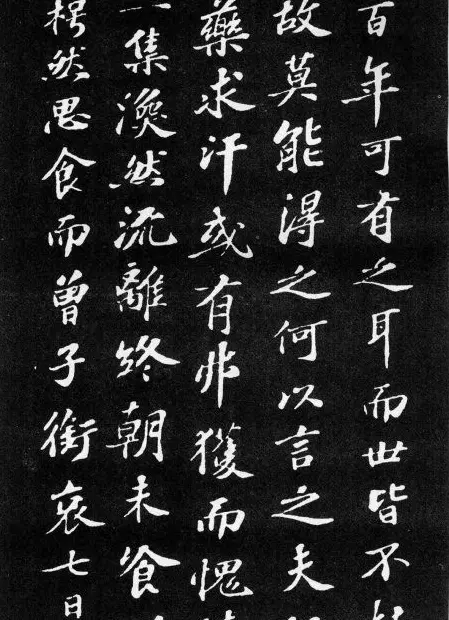 百年可有之耳而世皆不
故莫能得之何以言之夫
藥求汗或有弗獲而愧
一集渙然流離終朝未餐
然思食而曾子銜哀七日